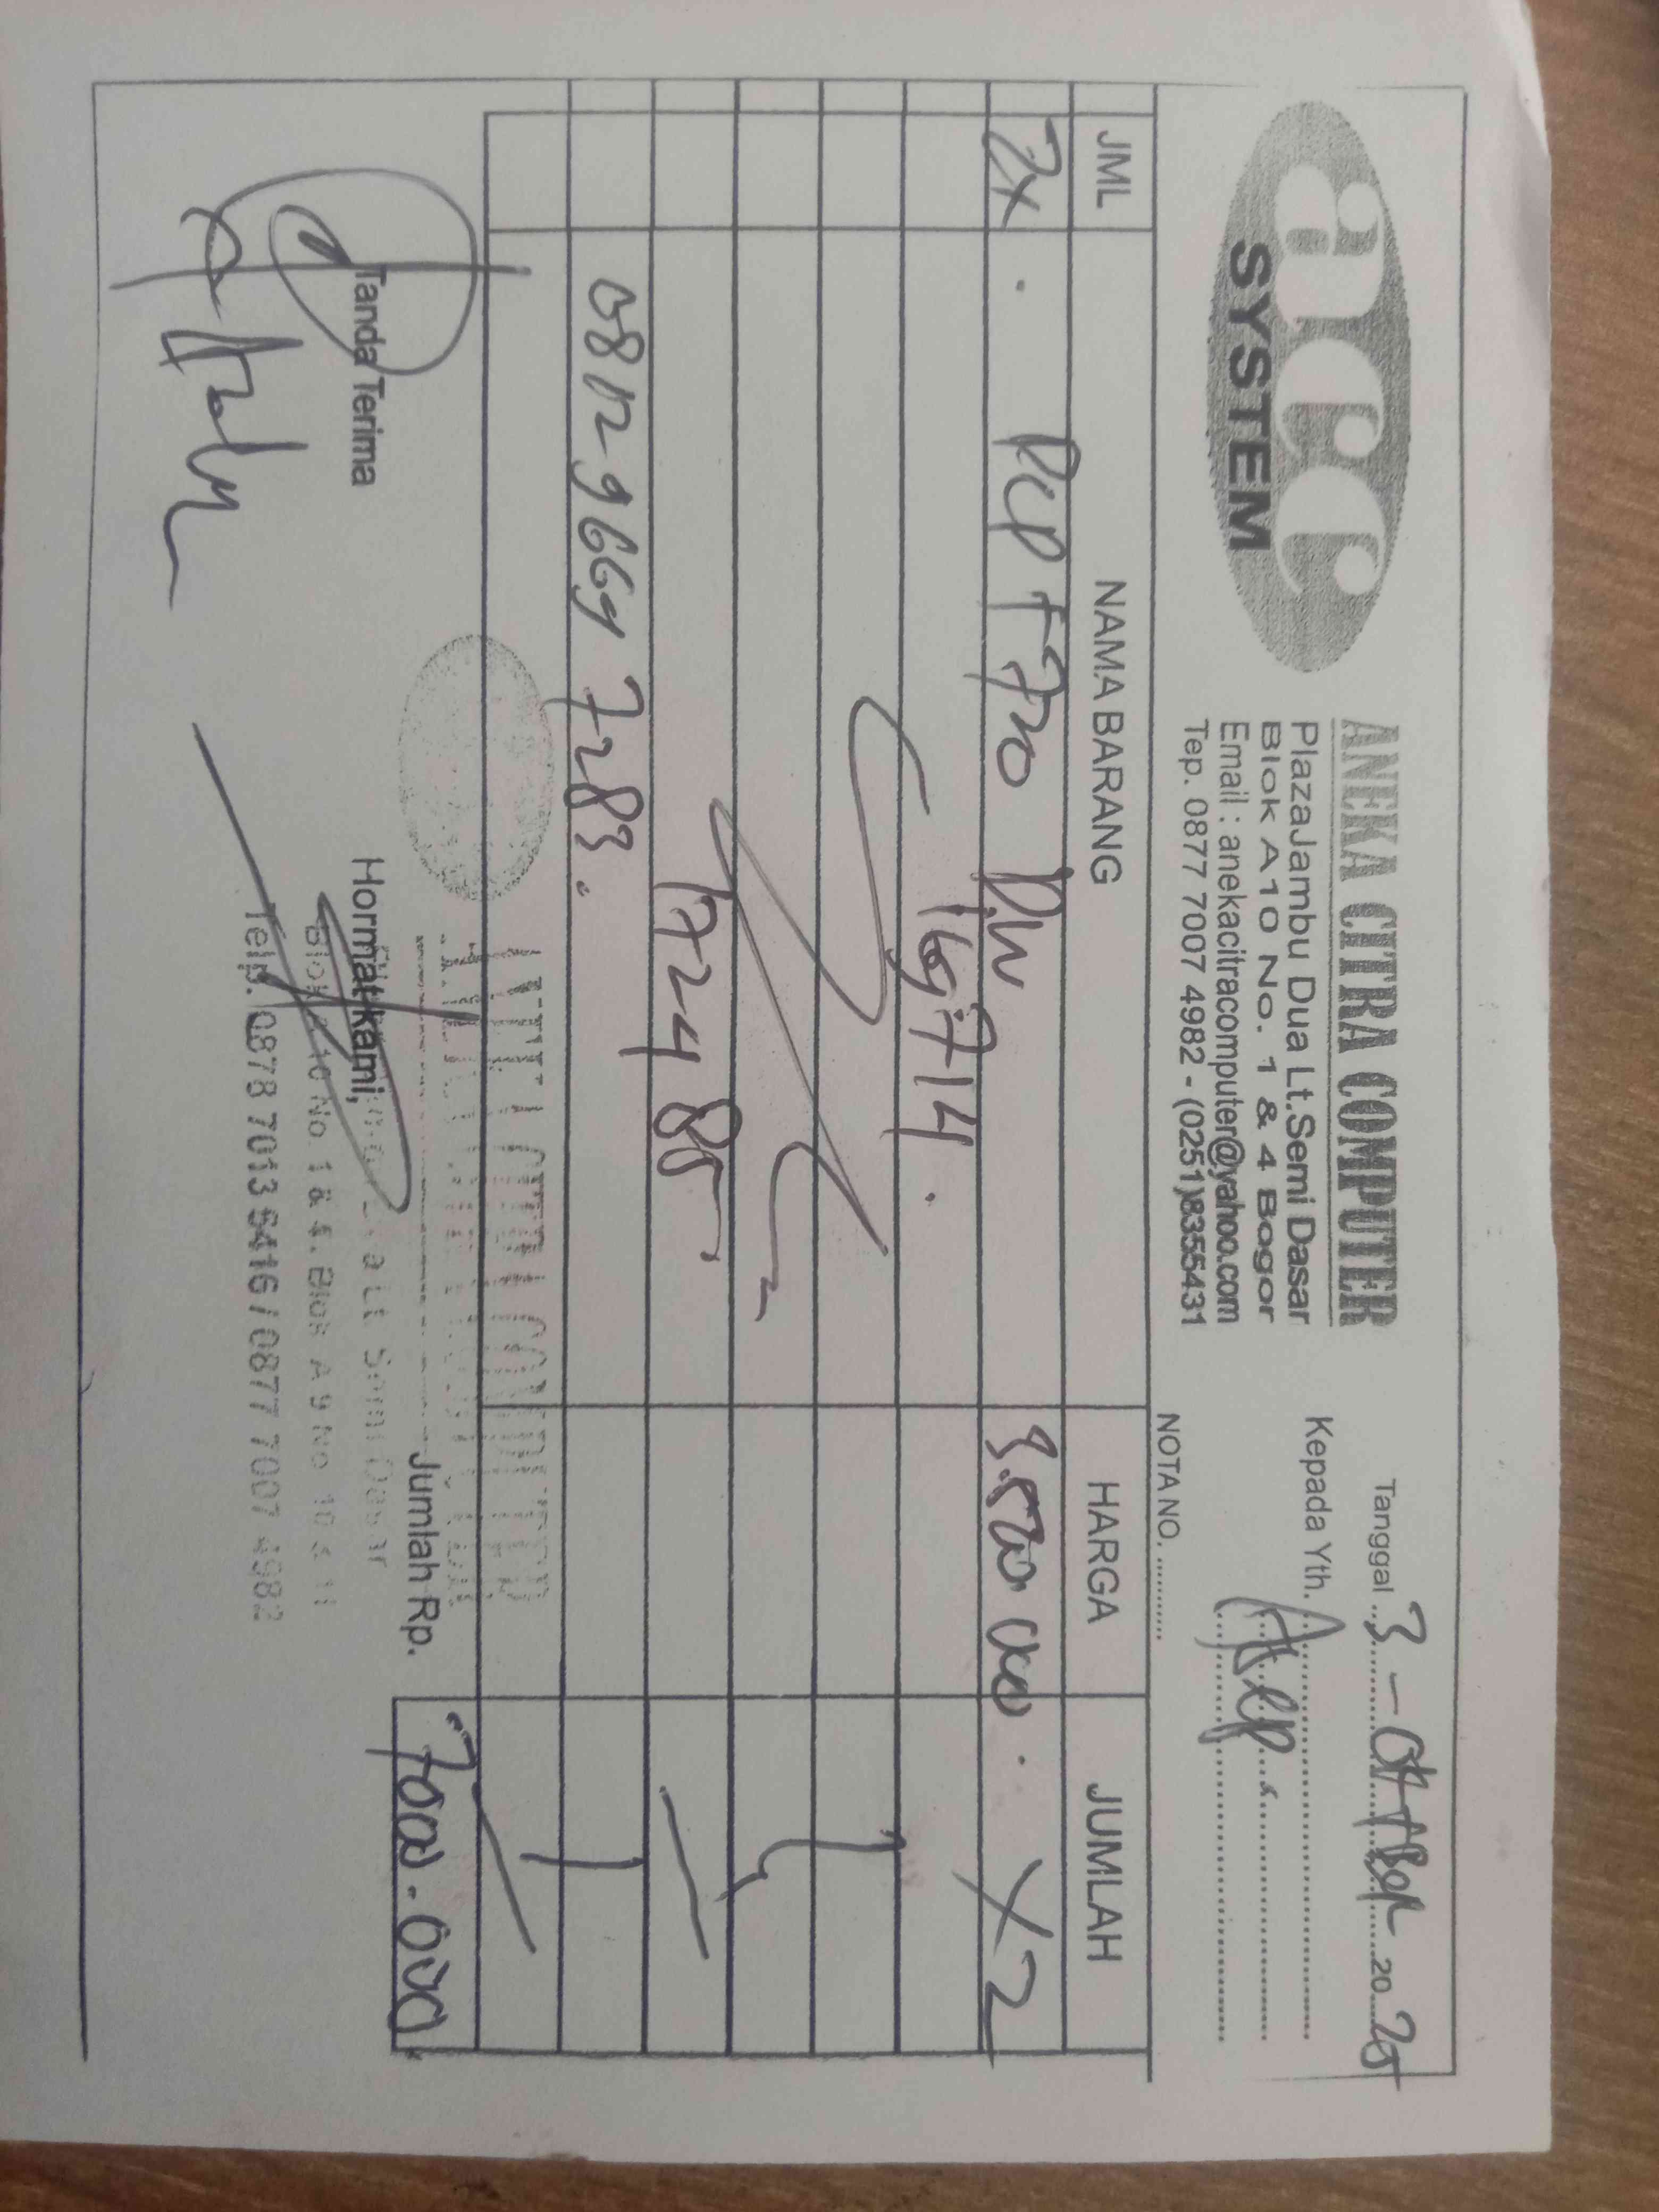 acc
SYSTEM
ANEKA CITRA COMPUTER
Plaza Jambu Dua Lt.Semi Dasar
Blok A10 No. 1 & 4 Bogor
Email : anekacitracomputer@yahoo.com
Tep. 0877 7007 4982 - (0251)8355431
Tanggal 3 - Oktober 2025
Kepada Yth.
NOTA NO. ..........
JML NAMA BARANG HARGA JUMLAH
2x . DCP T720 DW 3.500.000. X2
16g714.
172485
0812 9669 7283.
Jumlah Rp. 7000.000
Tanda Terima
Hormat kami,
ANEKA CITRA COMPUTER
Lt. Semi Dasar
Blok A 10 No. 1 & 4. Blok A 9 No 10 & 11
Telp. 0878 7013 5416 / 0877 7007 4982